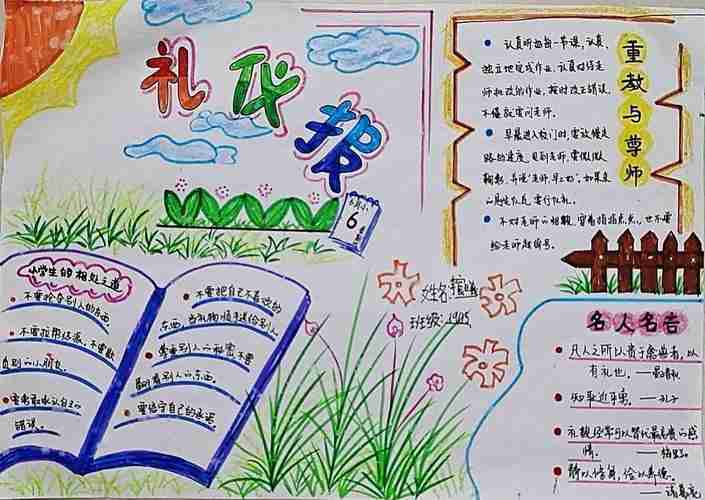 礼仪报
6
重教与尊师
● 认真听每一节课,认真、
独立地完成作业,认真对待老
师批改的作业,按时改正错误,
不懂就要问老师。
● 早晨进入校门时,要放慢走
路的速度,见到老师,要微微
鞠躬,并说"老师,早上好",如果
● 不对老师的相貌、穿着指指点点,也不要
给老师起绰号。
小学生的相处之道
● 不要抢夺别人的东西
● 不要拉帮结派,不要欺
负别的小朋友。
● 要勇敢承认自己的
错误。
● 不要把自己不喜欢的
东西,当礼物随手送给别人
● 尊重别人的秘密,不要
翻看别人的东西。
● 要信守自己的承诺。
姓名:
班级:1905
名人名言
● 凡人之所以贵于禽兽者,以
有礼也。——晏子
● 知耻近乎勇。——孔子
● 礼貌经常可以替代最高贵的感
情。
● 静以修身,俭以养德。
诸葛亮